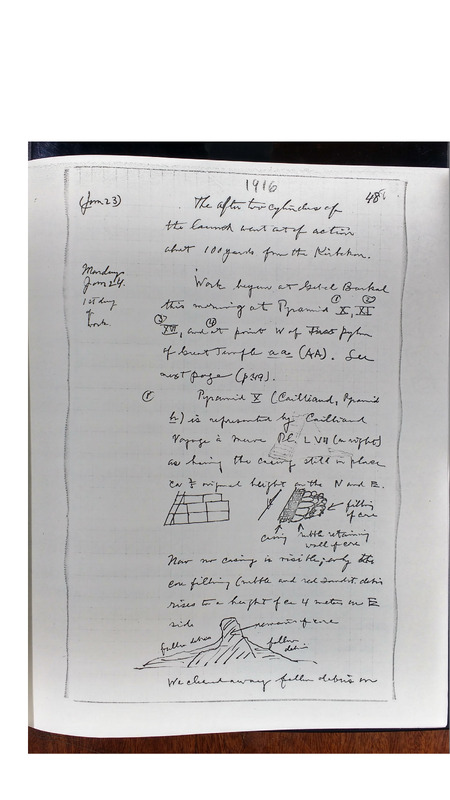 1916
48
(Jan 23)
The after two cylinders of
the launch went out of action
about 100 yards from the Kirbekan.
Monday
Jan 24.
1st day
of
work
Work began at Gebel Barkal
this morning at Pyramid ① X, ② XI
③ XVII, and ④ at point W of pylon
of Great Temple aa (AA). See
next page (p 319).
① Pyramid X (Cailliaud, Pyramid
h) is represented by Cailliaud
Voyage à Meroe Pl. LVII (on right)
as having the casing still in place
ca ½ original height on the N and E.
casing
rubble retaining
wall of core
filling
of core
Now no casing is visible; only the
core filling (rubble and red sandst. debris
rises to a height of ca 4 meters on E
side
fallen debris
remains of core
fallen
debris
We cleared away fallen debris on